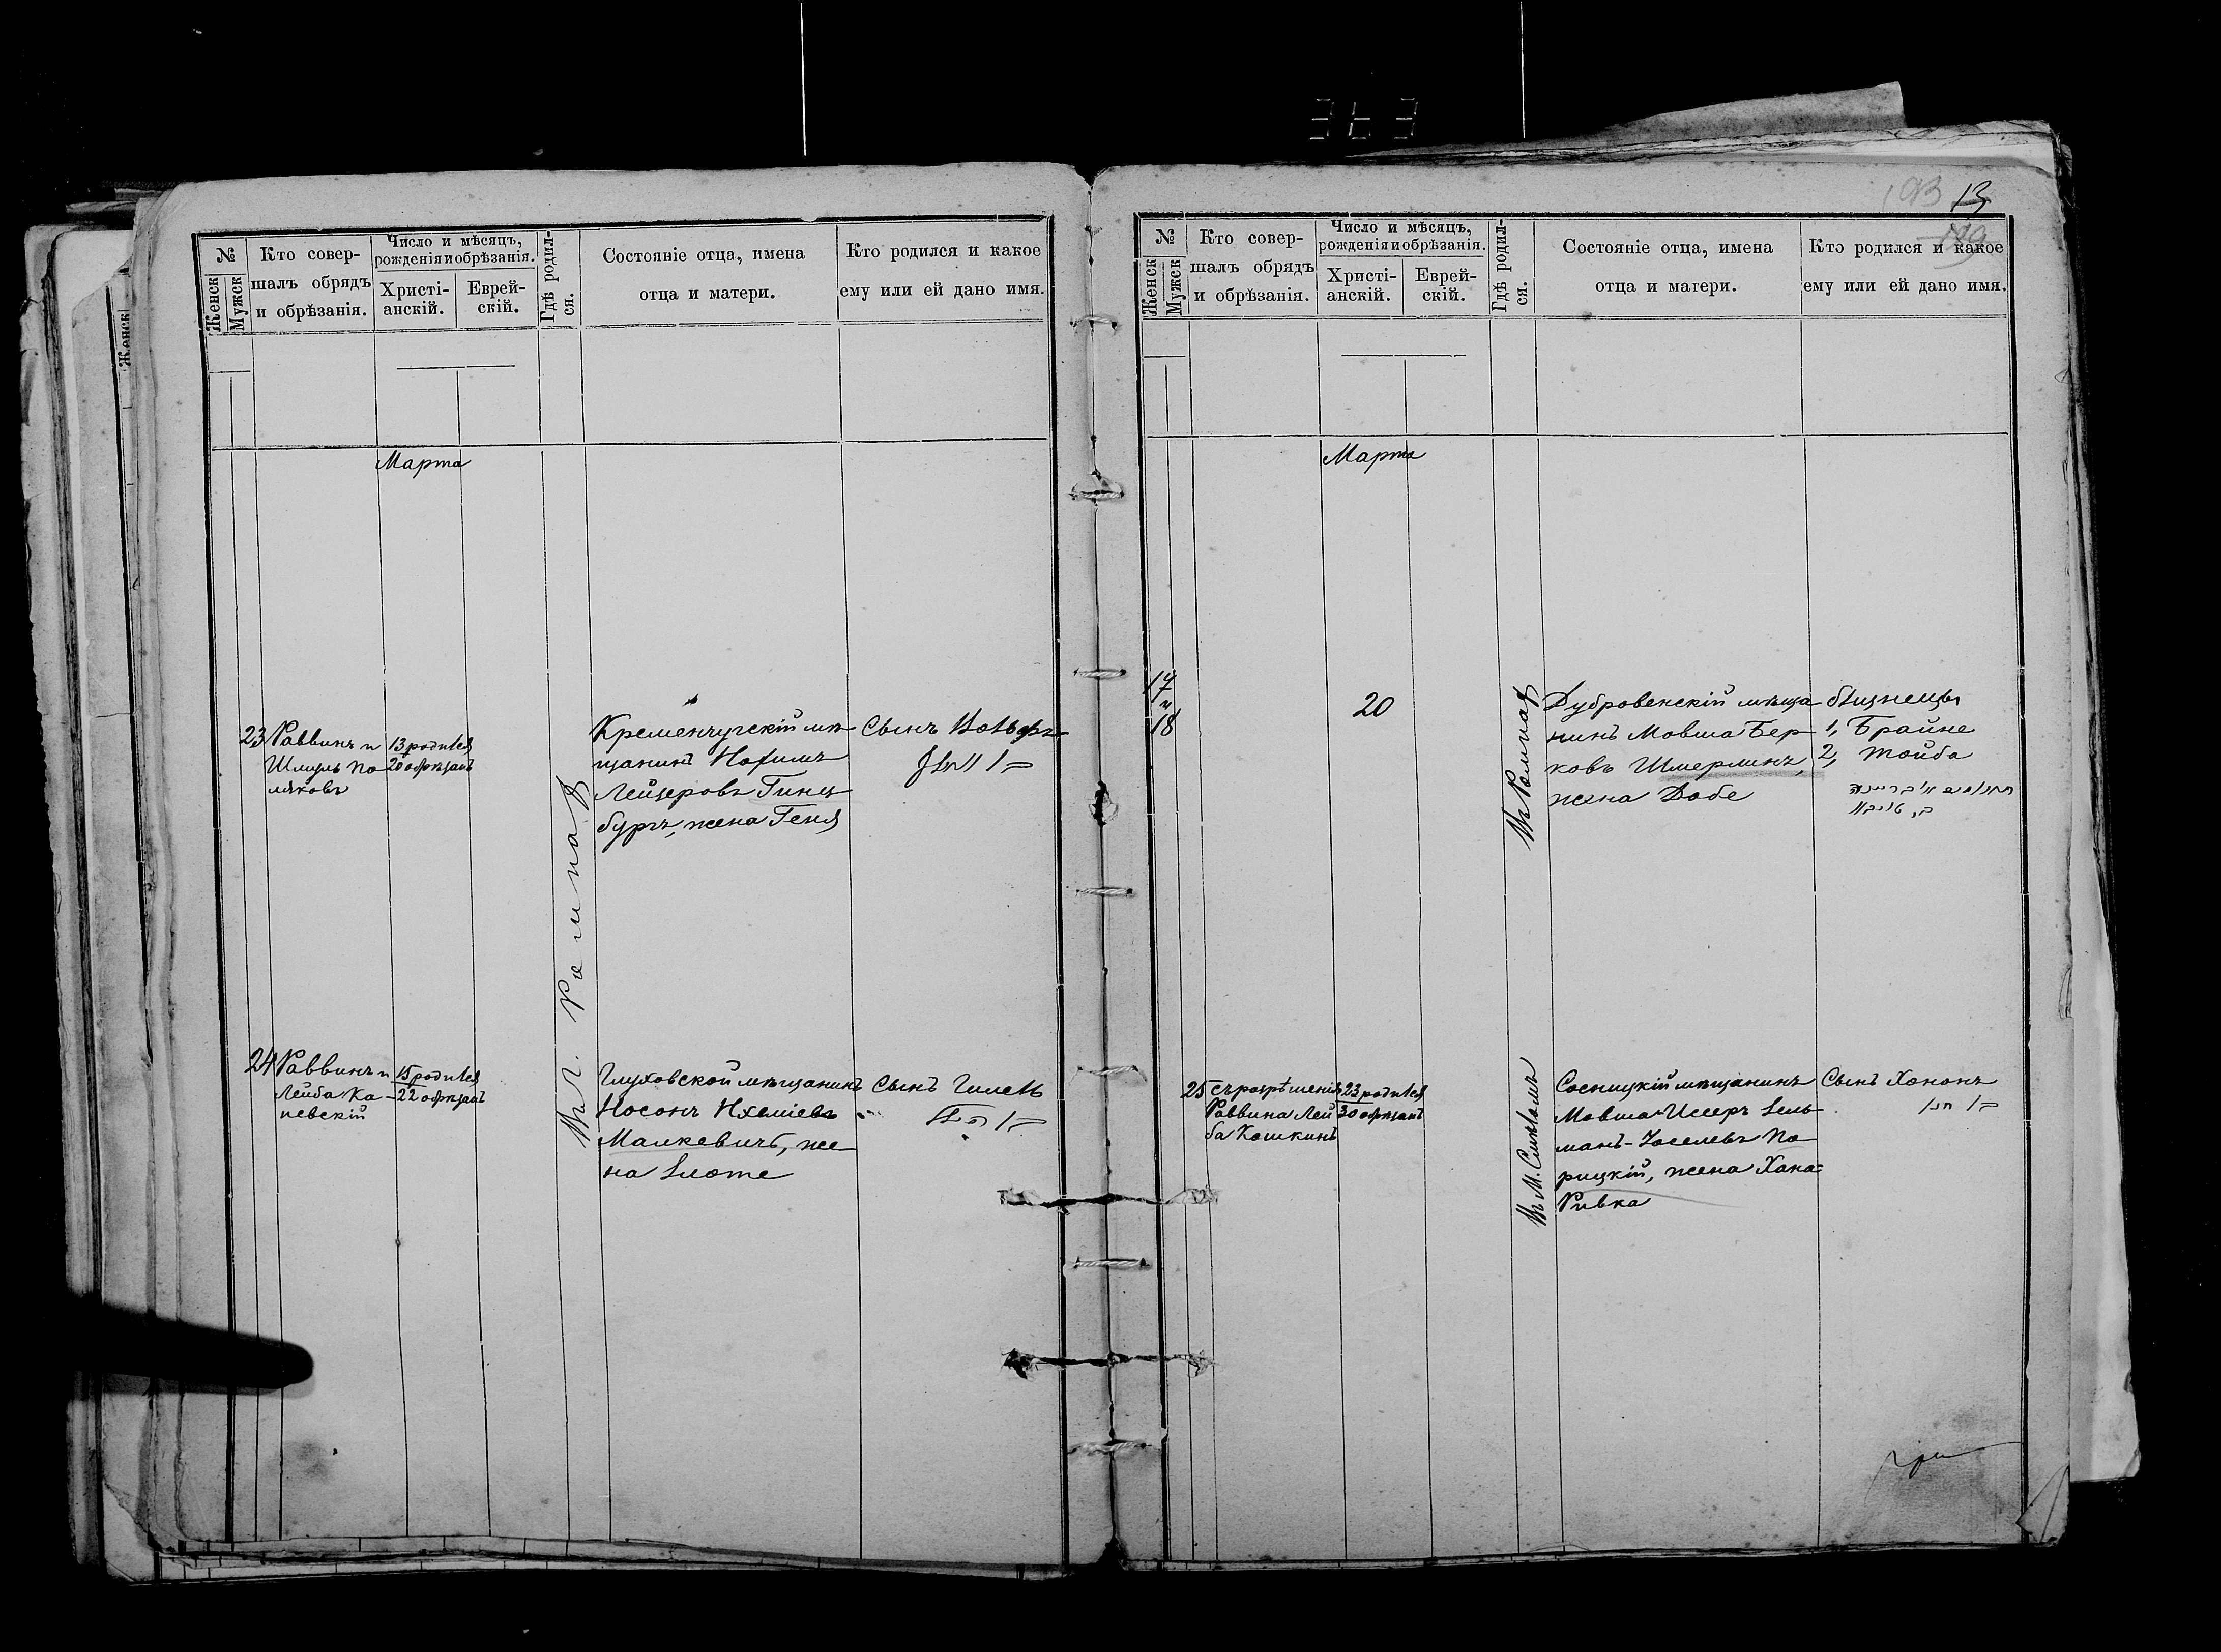 363
193 13
№
Женск
Мужск
Кто совер-
шалъ обрядъ
и обрѣзанія.
Число и мѣсяцъ,
рожденія и обрѣзанія.
Христі-
анскій.
Еврей-
скій.
Гдѣ родил-
ся.
Состояніе отца, имена
отца и матери.
Кто родился и какое
ему или ей дано имя.
Марта
23
Раввинъ и
Шмуль По
ляковъ
13 родился
20 обрѣзанъ
Въ г. Ромнахъ
Кременчугскій мѣ
щанинъ Нохимъ
Лейзеровъ Гинц
бургъ, жена Геня
Сынъ Вольфъ
24
Раввинъ и
Лейба Ка
невскій
15 родился
22 обрѣзанъ
Глуховской мѣщанинъ
Носонъ Ихелiевъ
Малкевичъ, же
на Злоте
Сынъ Гилель
№
Женск
Мужск
Кто совер-
шалъ обрядъ
и обрѣзанія.
Число и мѣсяцъ,
рожденія и обрѣзанія.
Христі-
анскій.
Еврей-
скій.
Гдѣ родил-
ся.
Состояніе отца, имена
отца и матери.
Кто родился и какое
ему или ей дано имя.
Марта
17
и
18
20
Въ Ромнахъ
Дубровенскій мѣща
нинъ Мовша Бер
ковъ Шмерлинъ,
жена Добе
близнецы
1, Брайне
2, Тойба
25
Съ разрѣшенія
Раввина Лей
ба Кошкинъ
23 родился
30 обрѣзанъ
Въ М. Смѣломъ
Сосницкій мѣщанинъ
Мовша-Исеръ Зель
манъ-Іоселевъ По
рицкій, жена Хана=
Ривка
Сынъ Хононъ